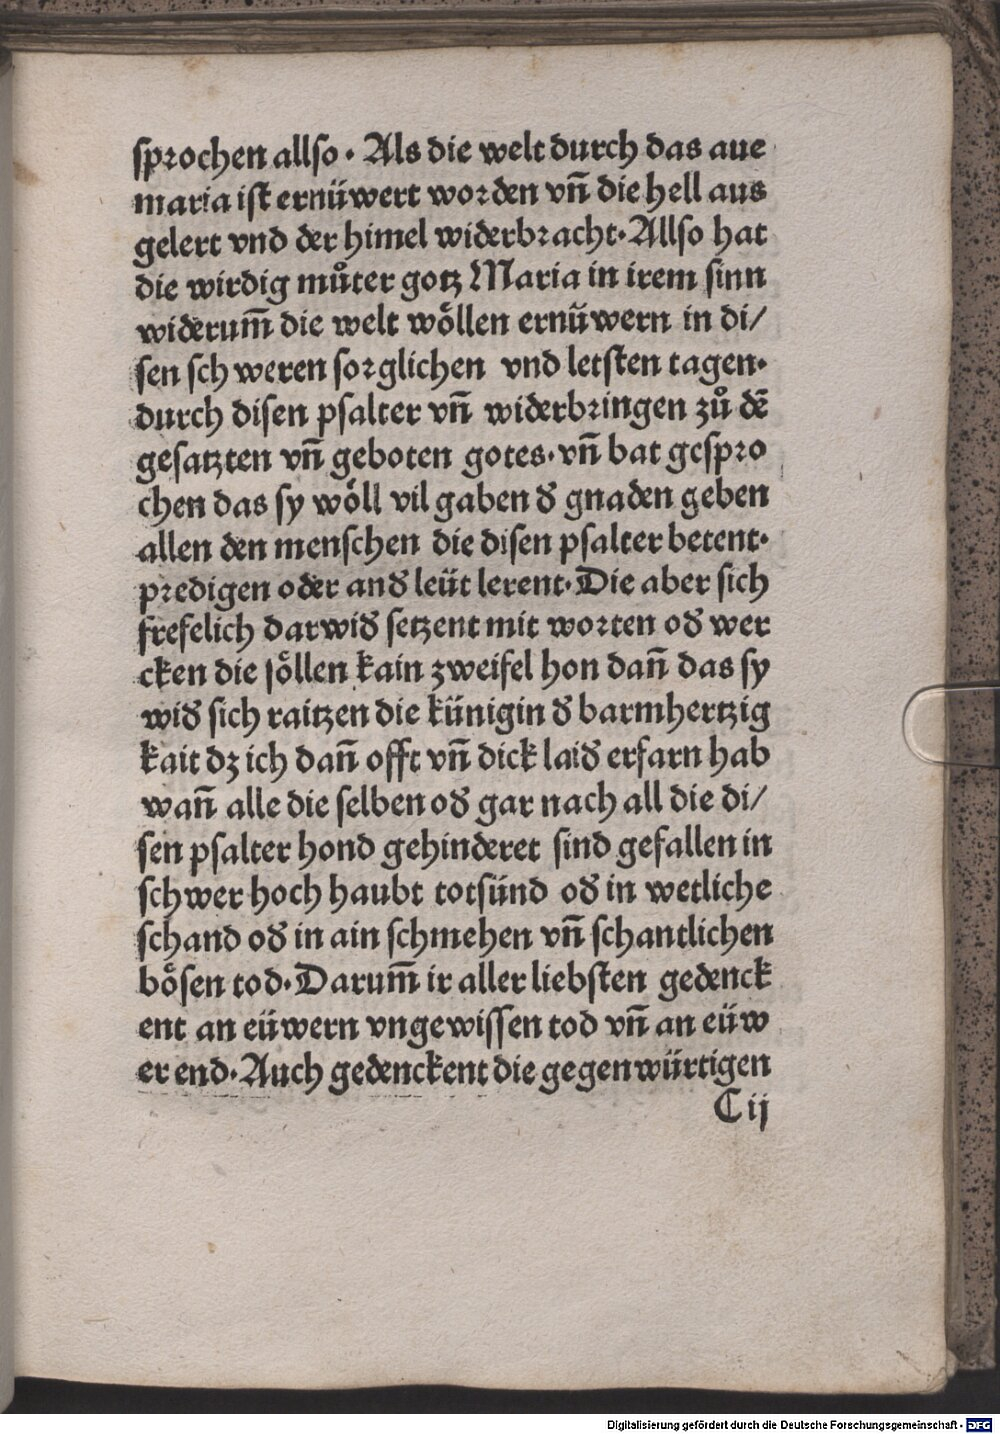 sprochen allso. Als die welt durch das aue
maria ist ernüwert worden vn̄ die hell aus
gelert vnd der himel widerbracht. Allso hat
die wirdig můter gotz Maria in irem sinn
widerum̄ die welt wöllen ernüwern in di/
sen schweren sorglichen vnd letsten tagen.
durch disen psalter vn̄ widerbringen zů dē
gesatzten vn̄ geboten gotes. vn̄ hat gespro
chen das sy wöll vil gaben d̕ gnaden geben
allen den menschen die disen psalter betent.
predigen oder and̕ leüt lerent. Die aber sich
frefelich darwid̕ setzent mit worten od̕ wer
cken die söllen kain zweifel hon dan̄ das sy
wid̕ sich raitzen die künigin d̕ barmhertzig
kait dz ich dan̄ offt vn̄ dick laid̕ erfarn hab
wan̄ alle die selben od̕ gar nach all die di/
sen psalter hond gehinderet sind gefallen in
schwer hoch haubt totsünd od̕ in wetliche
schand od̕ in ain schmehen vn̄ schantlichen
bösen tod. Darum̄ ir aller liebsten gedenck
ent an eüwern vngewissen tod vn̄ an eüw
er end. Auch gedenckent die gegenwürtigen
C ij
Digitalisierung gefördert durch die Deutsche Forschungsgemeinschaft - DFG